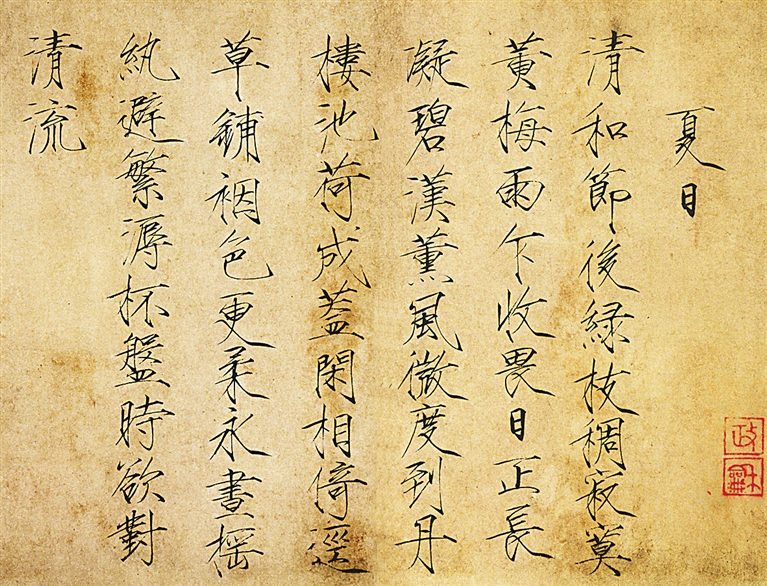 夏日
清和節後緑枝稠寂莫
黄梅雨乍收畏日正長
凝碧漢薰風微度到丹
樓池荷成蓋閑相倚逕
草鋪裀色更柔永晝摇
紈避繁溽杯盤時欲對
清流
政龢